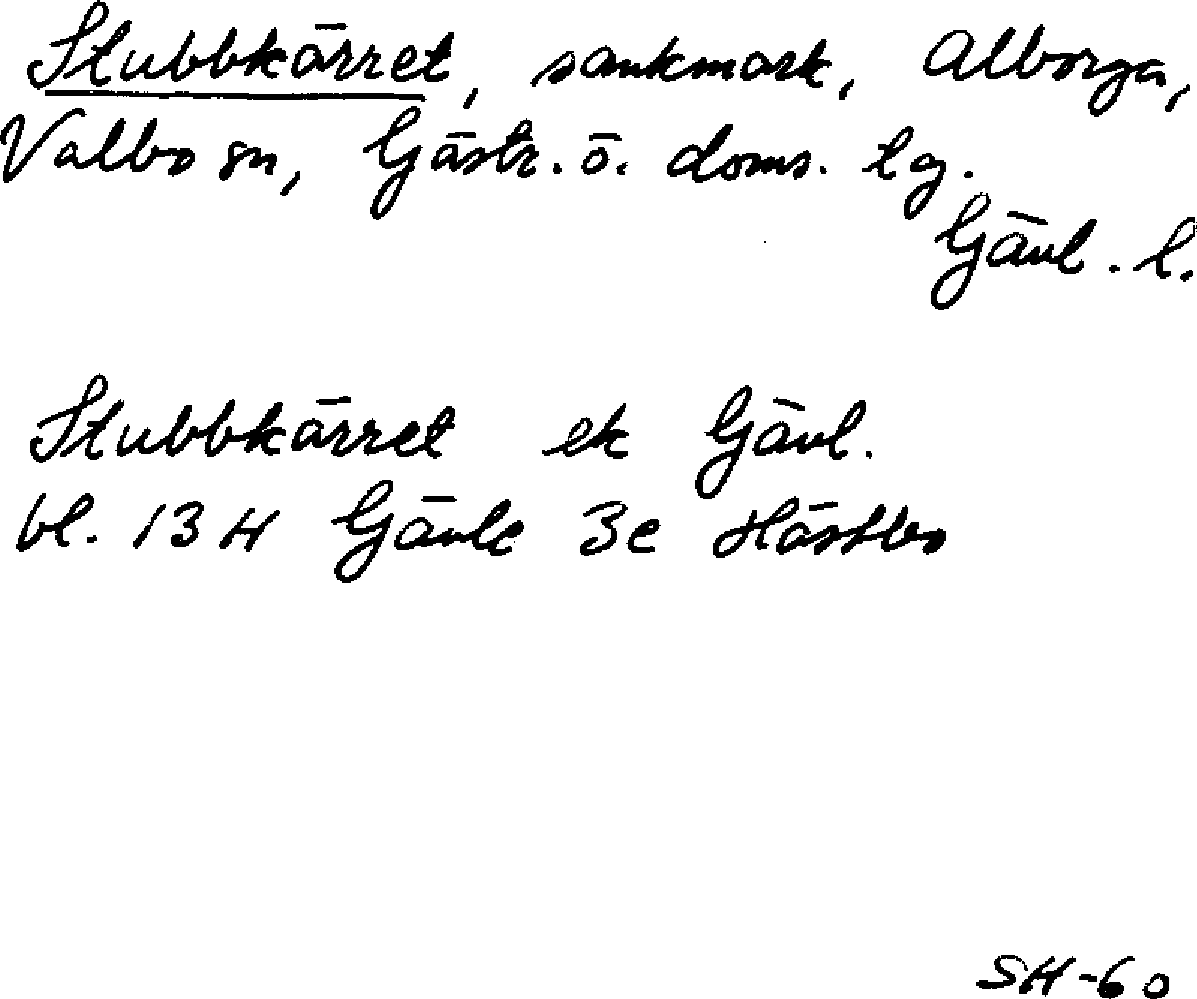 Stubbkärret, sankmark, Alborga,
Valbo sn, Gästr. ö. doms. tg.
Gävl. l.
Stubbkärret ek Gävl.
bl. 13 H Gävle 3e Hästbo
SH-60